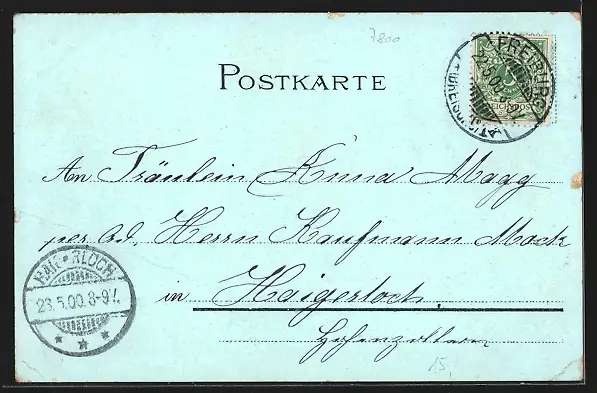 7800
POSTKARTE
FREIBURG
REICHSPOST
An Fräulein Anna Magg
per Ad. Herrn Kaufmann Mock
in Haigerloch.
Hohenzollern
HAIGERLOCH
23.5.00.8-9V.
15,